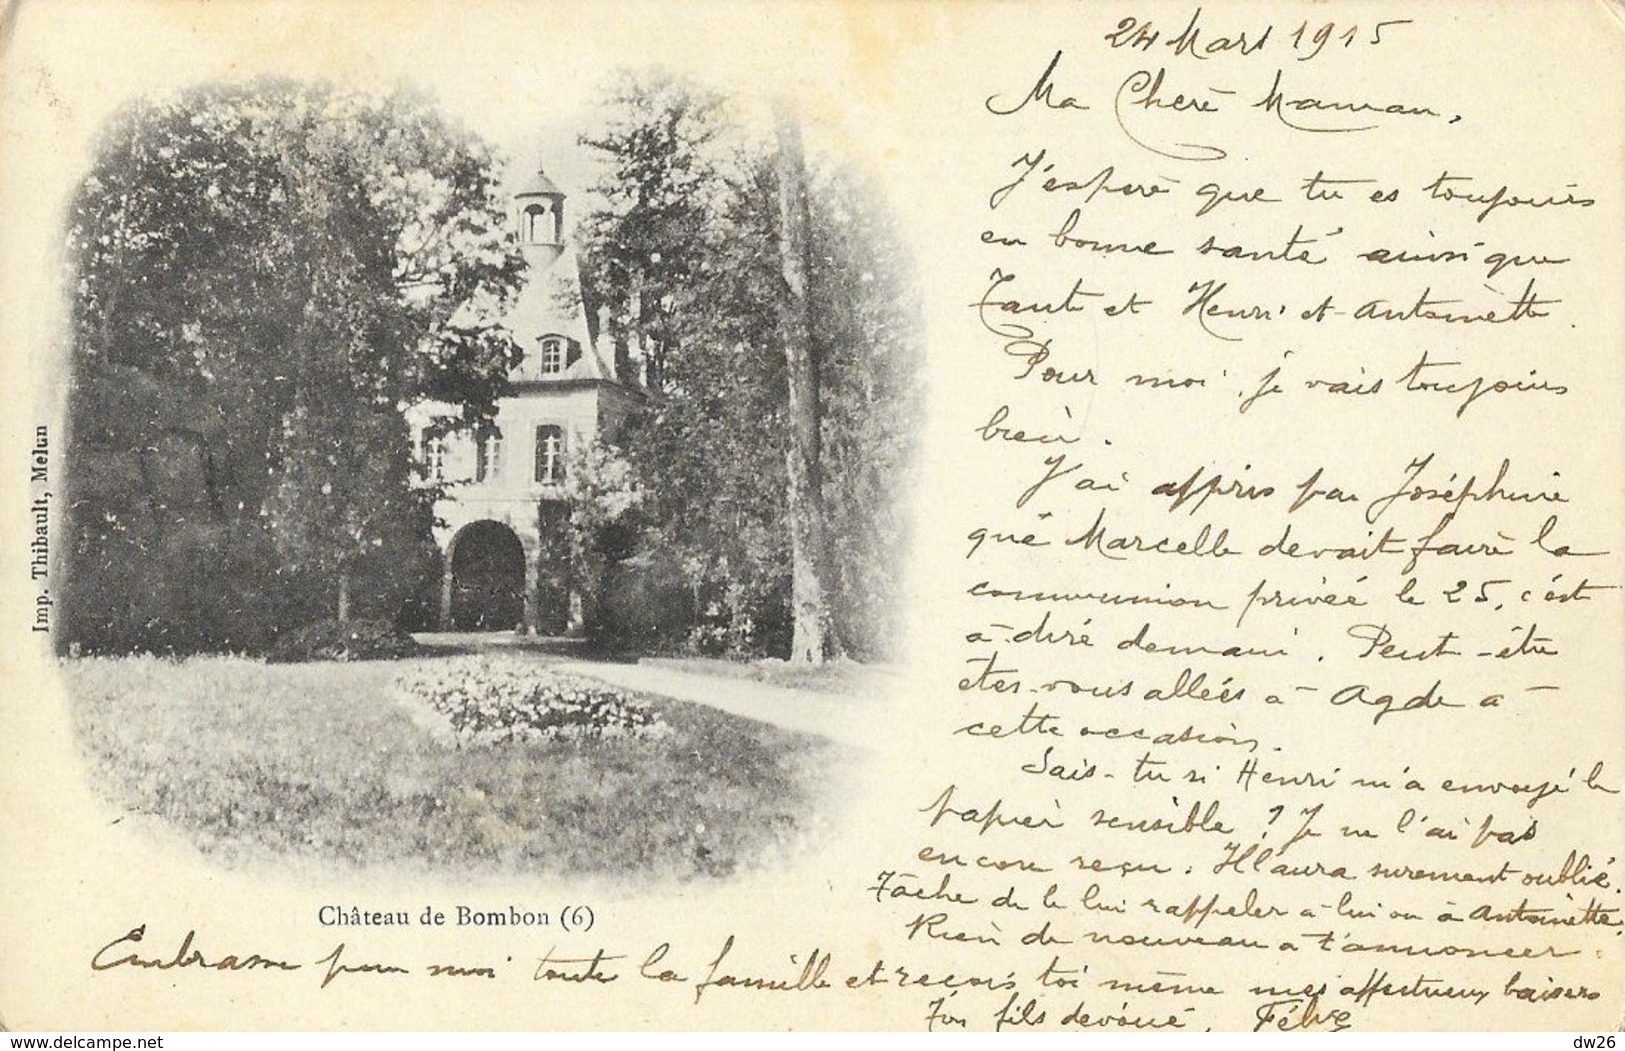 24 Mars 1915
Ma Chère Maman,
J'espère que tu es toujours
en bonne santé ainsi que
Tante et Henri et Antoinette.
Pour moi, je vais toujours
bien.
J'ai appris par Joséphine
que Marcelle devait faire la
communion privée le 25, c'est
à-dire demain. Peut-être
êtes-vous allées à Agde à
cette occasion.
Sais-tu si Henri m'a envoyé le
papier sensible? Je ne l'ai pas
encore reçu. Il l'aura surement oublié.
Tâche de le lui rappeler à lui ou à Antoinette.
Rien de nouveau a t'annoncer.
Embrasse pour moi toute la famille et reçois toi même mes affectueux baisers
Ton fils dévoué, Félix
Imp. Thibault, Melun
Château de Bombon (6)
www.delcampe.net
dw26